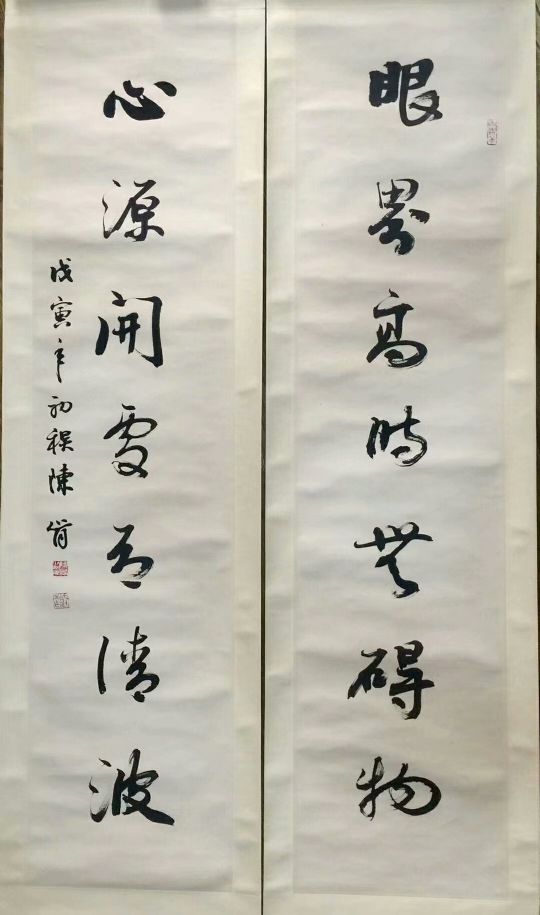 眼界高時無礙物
心源開處有清波
戊寅年初秋陳